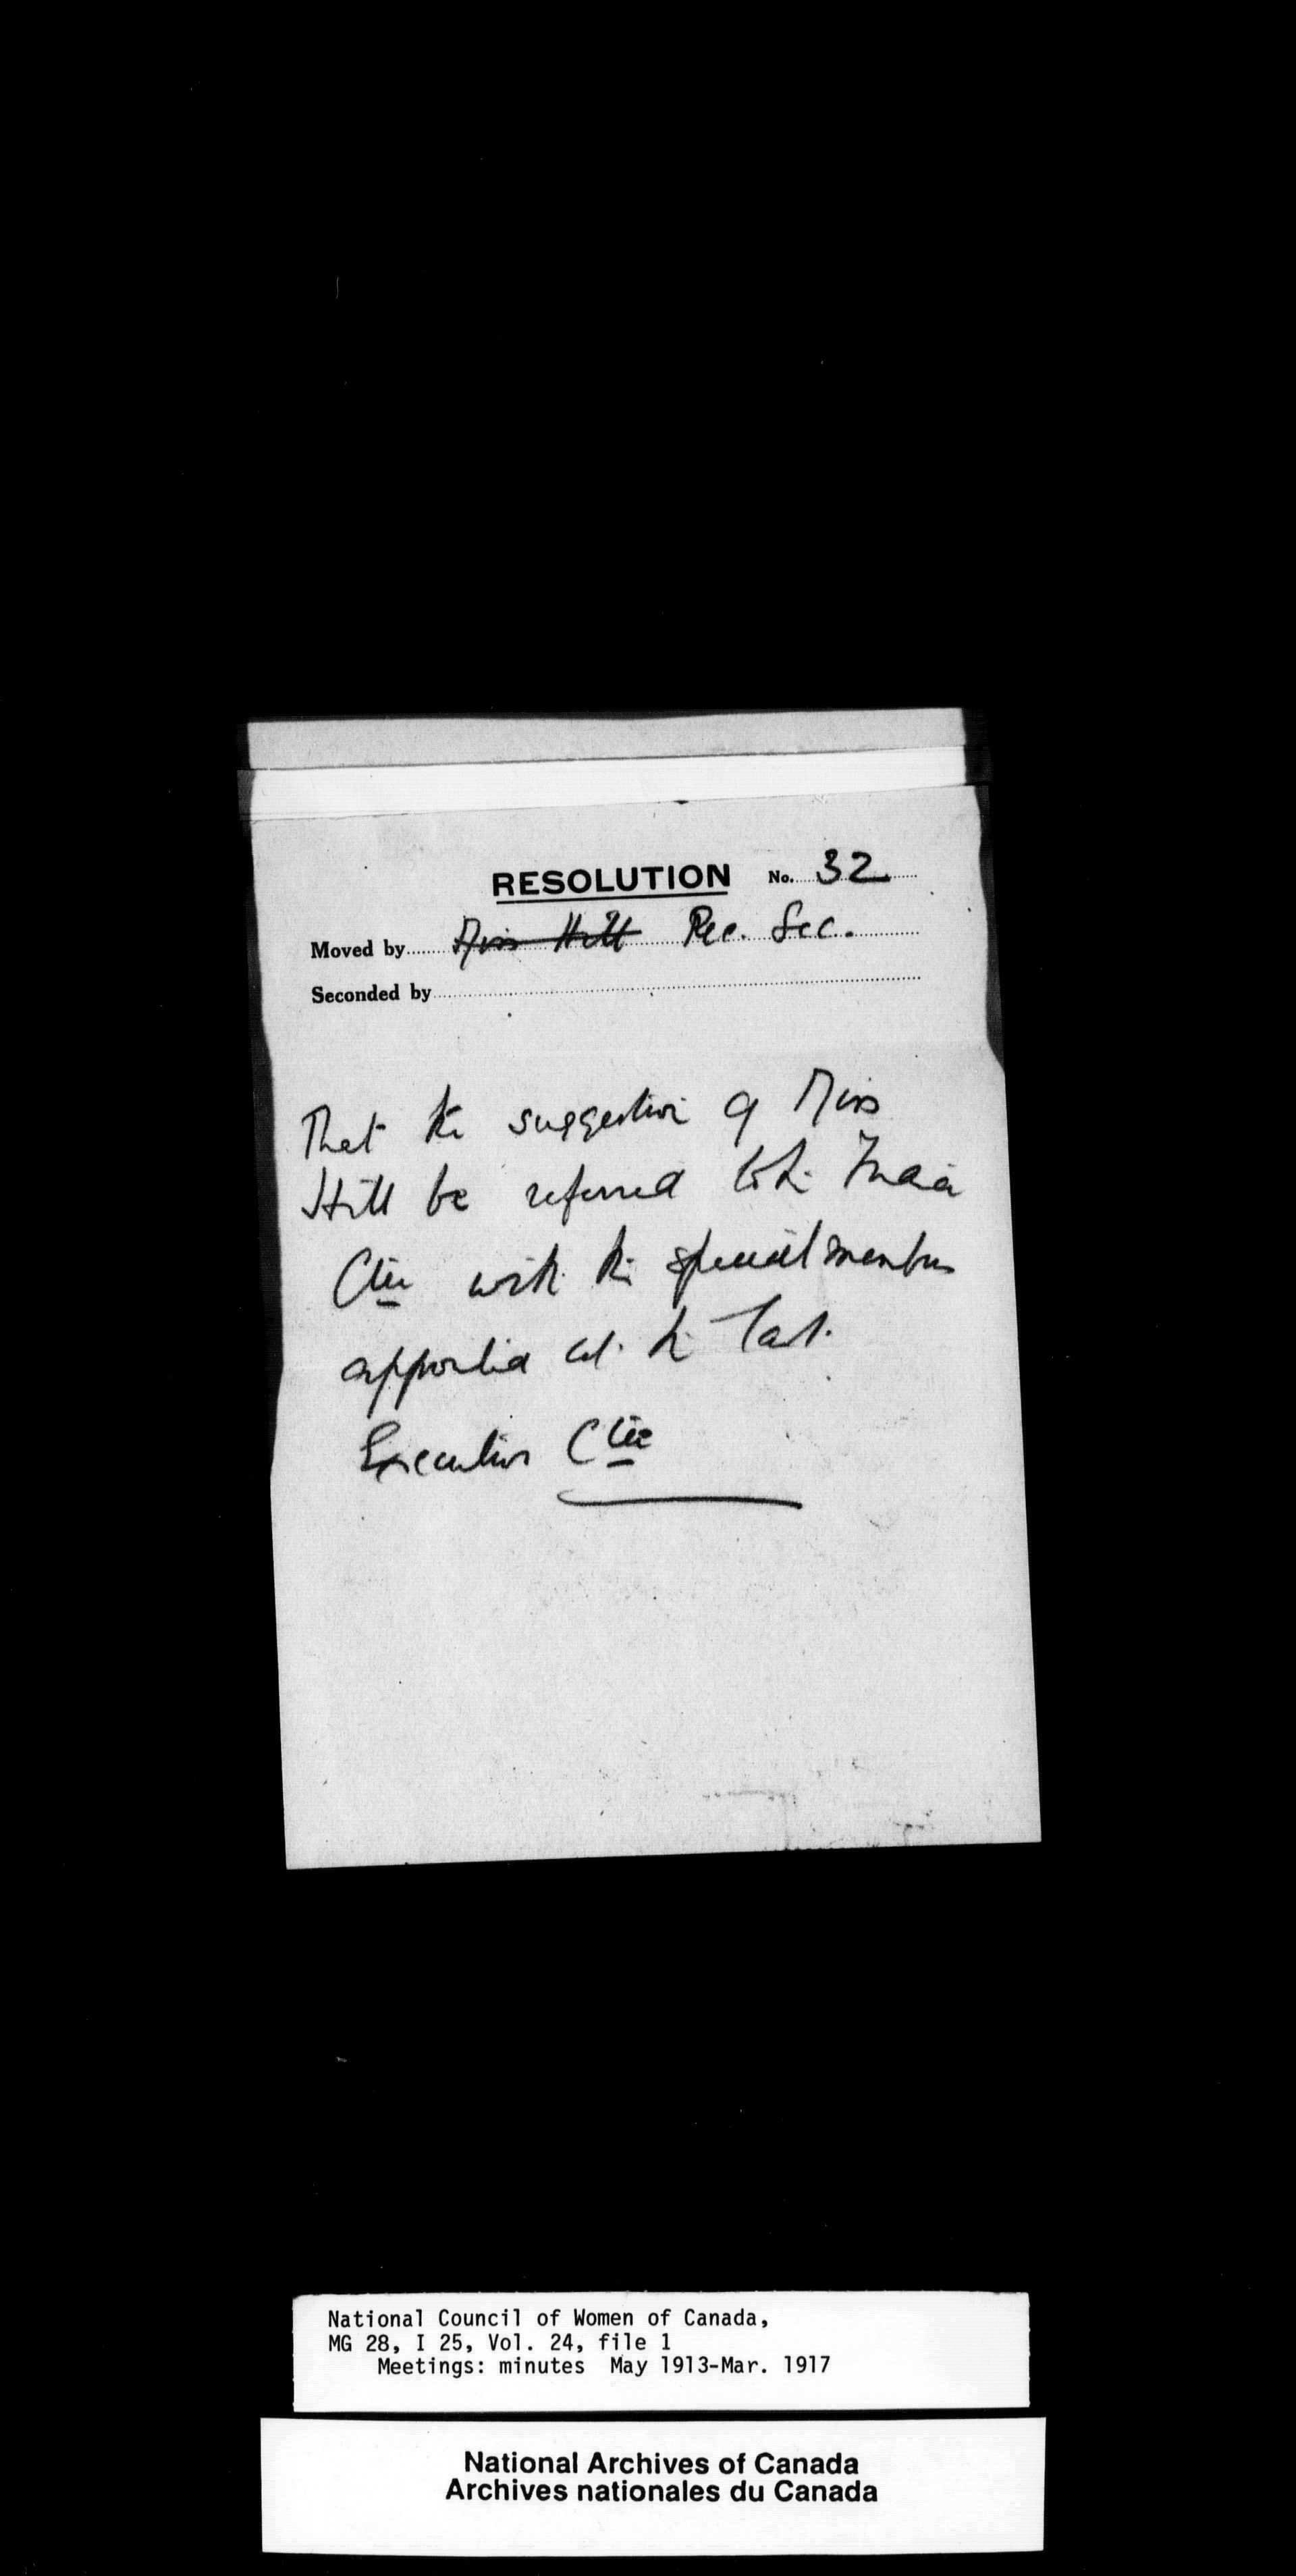 RESOLUTION No. 32
Moved by Miss Hill Rec. Sec.
Seconded by
That the suggestion of Miss
Hill be referred to the India
Ctee with the special members
appointed at the last
Executive Ctee
National Council of Women of Canada,
MG 28, I 25, Vol. 24, file 1
Meetings: minutes May 1913-Mar. 1917
National Archives of Canada
Archives nationales du Canada